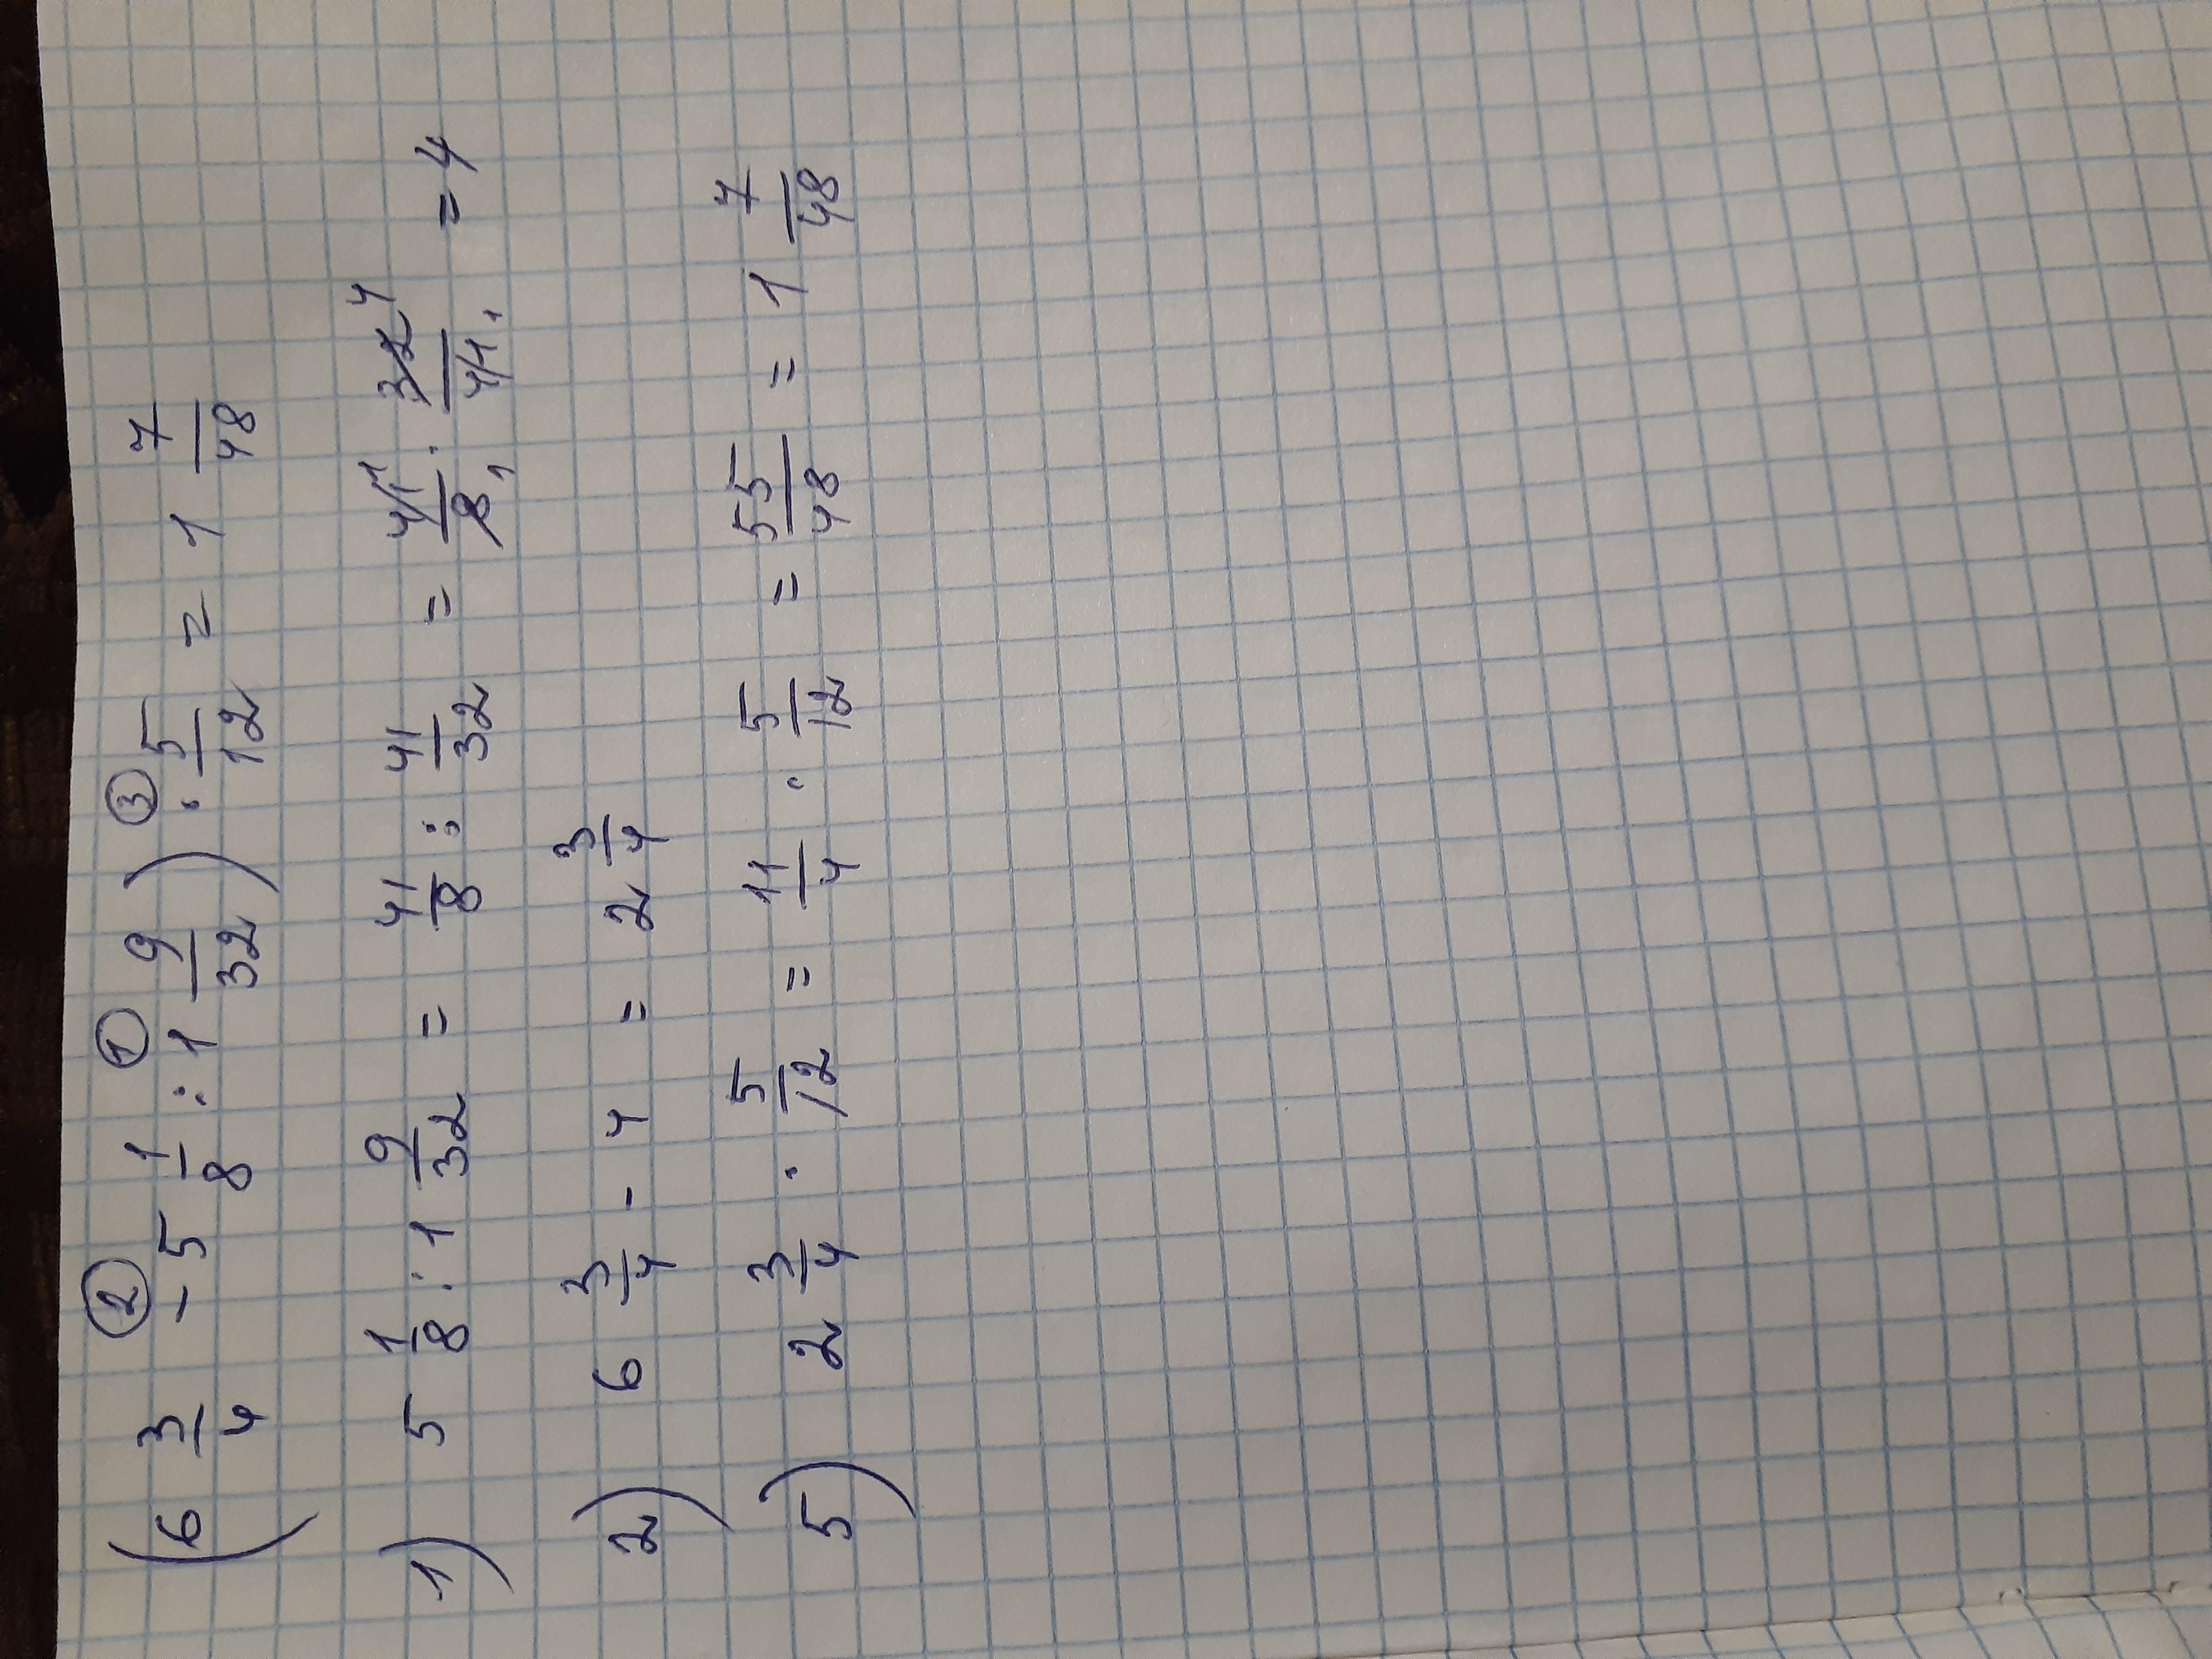 (6 3/4 - ② 5 1/8 : ① 1 9/32) · ③ 5/12 = 1 7/48
1) 5 1/8 : 1 9/32 = 41/8 : 41/32 = 41 1/8 1 · 32 4/41 1 = 4
2) 6 3/4 - 4 = 2 3/4
5) 2 3/4 · 5/12 = 11/4 · 5/12 = 55/48 = 1 7/48